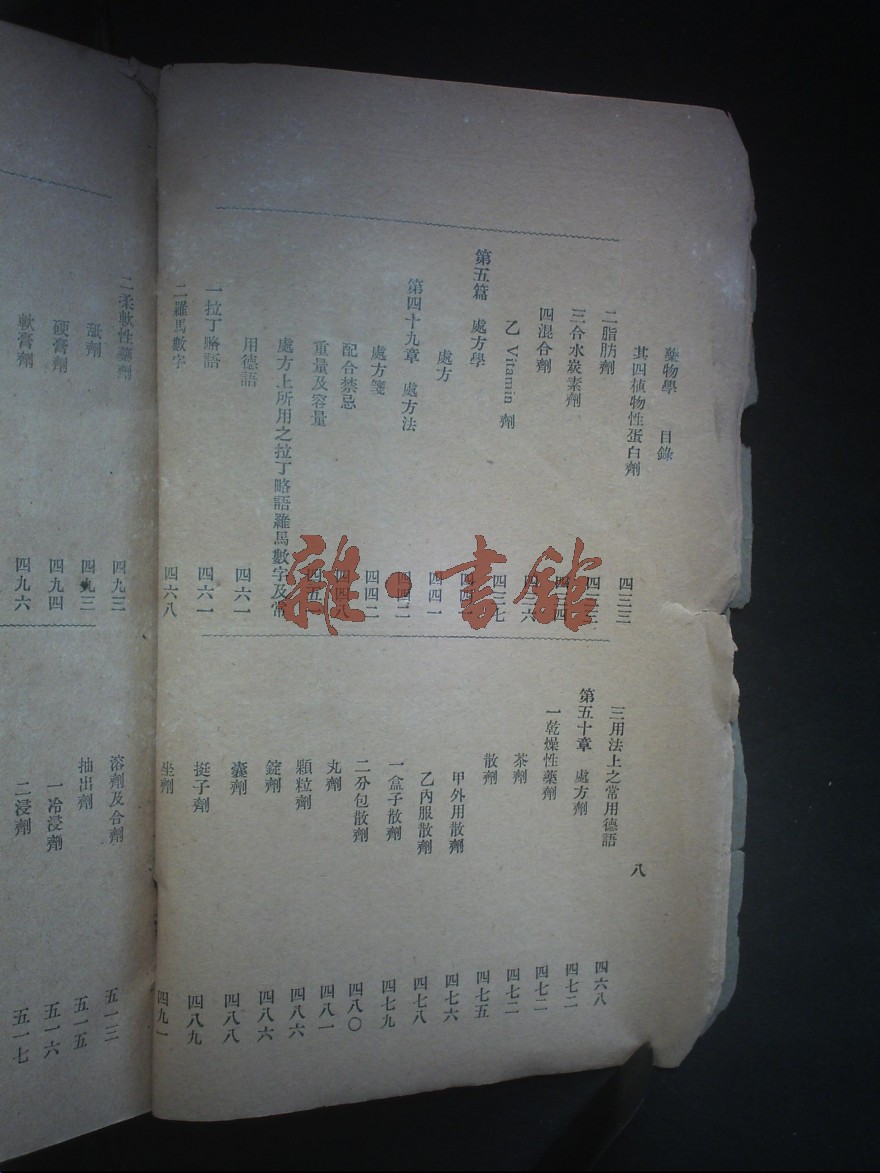 藥物學 目錄
其四植物性蛋白劑 四三三
二脂肪劑
三合水炭素劑
四混合劑
乙 Vitamin 劑 四三七
第五篇 處方學
處方 四四一
第四十九章 處方法
處方箋 四四二
配合禁忌
重量及容量
處方上所用之拉丁略語羅馬數字及常
用德語 四六一
一拉丁略語 四六一
二羅馬數字 四六八
三用法上之常用德語 四六八
第五十章 處方劑 四七二
一乾燥性藥劑 四七二
茶劑 四七二
散劑 四七五
甲外用散劑 四七六
乙內服散劑 四七八
一盒子散劑 四七九
二分包散劑 四八〇
丸劑 四八一
顆粒劑 四八六
錠劑 四八六
囊劑 四八八
挺子劑 四八九
坐劑 四九一
八
二柔軟性藥劑 四九三
舐劑 四九三
硬膏劑 四九四
軟膏劑 四九六
溶劑及合劑 五一三
抽出劑 五一五
一冷浸劑 五一六
二浸劑 五一七
雜·書館